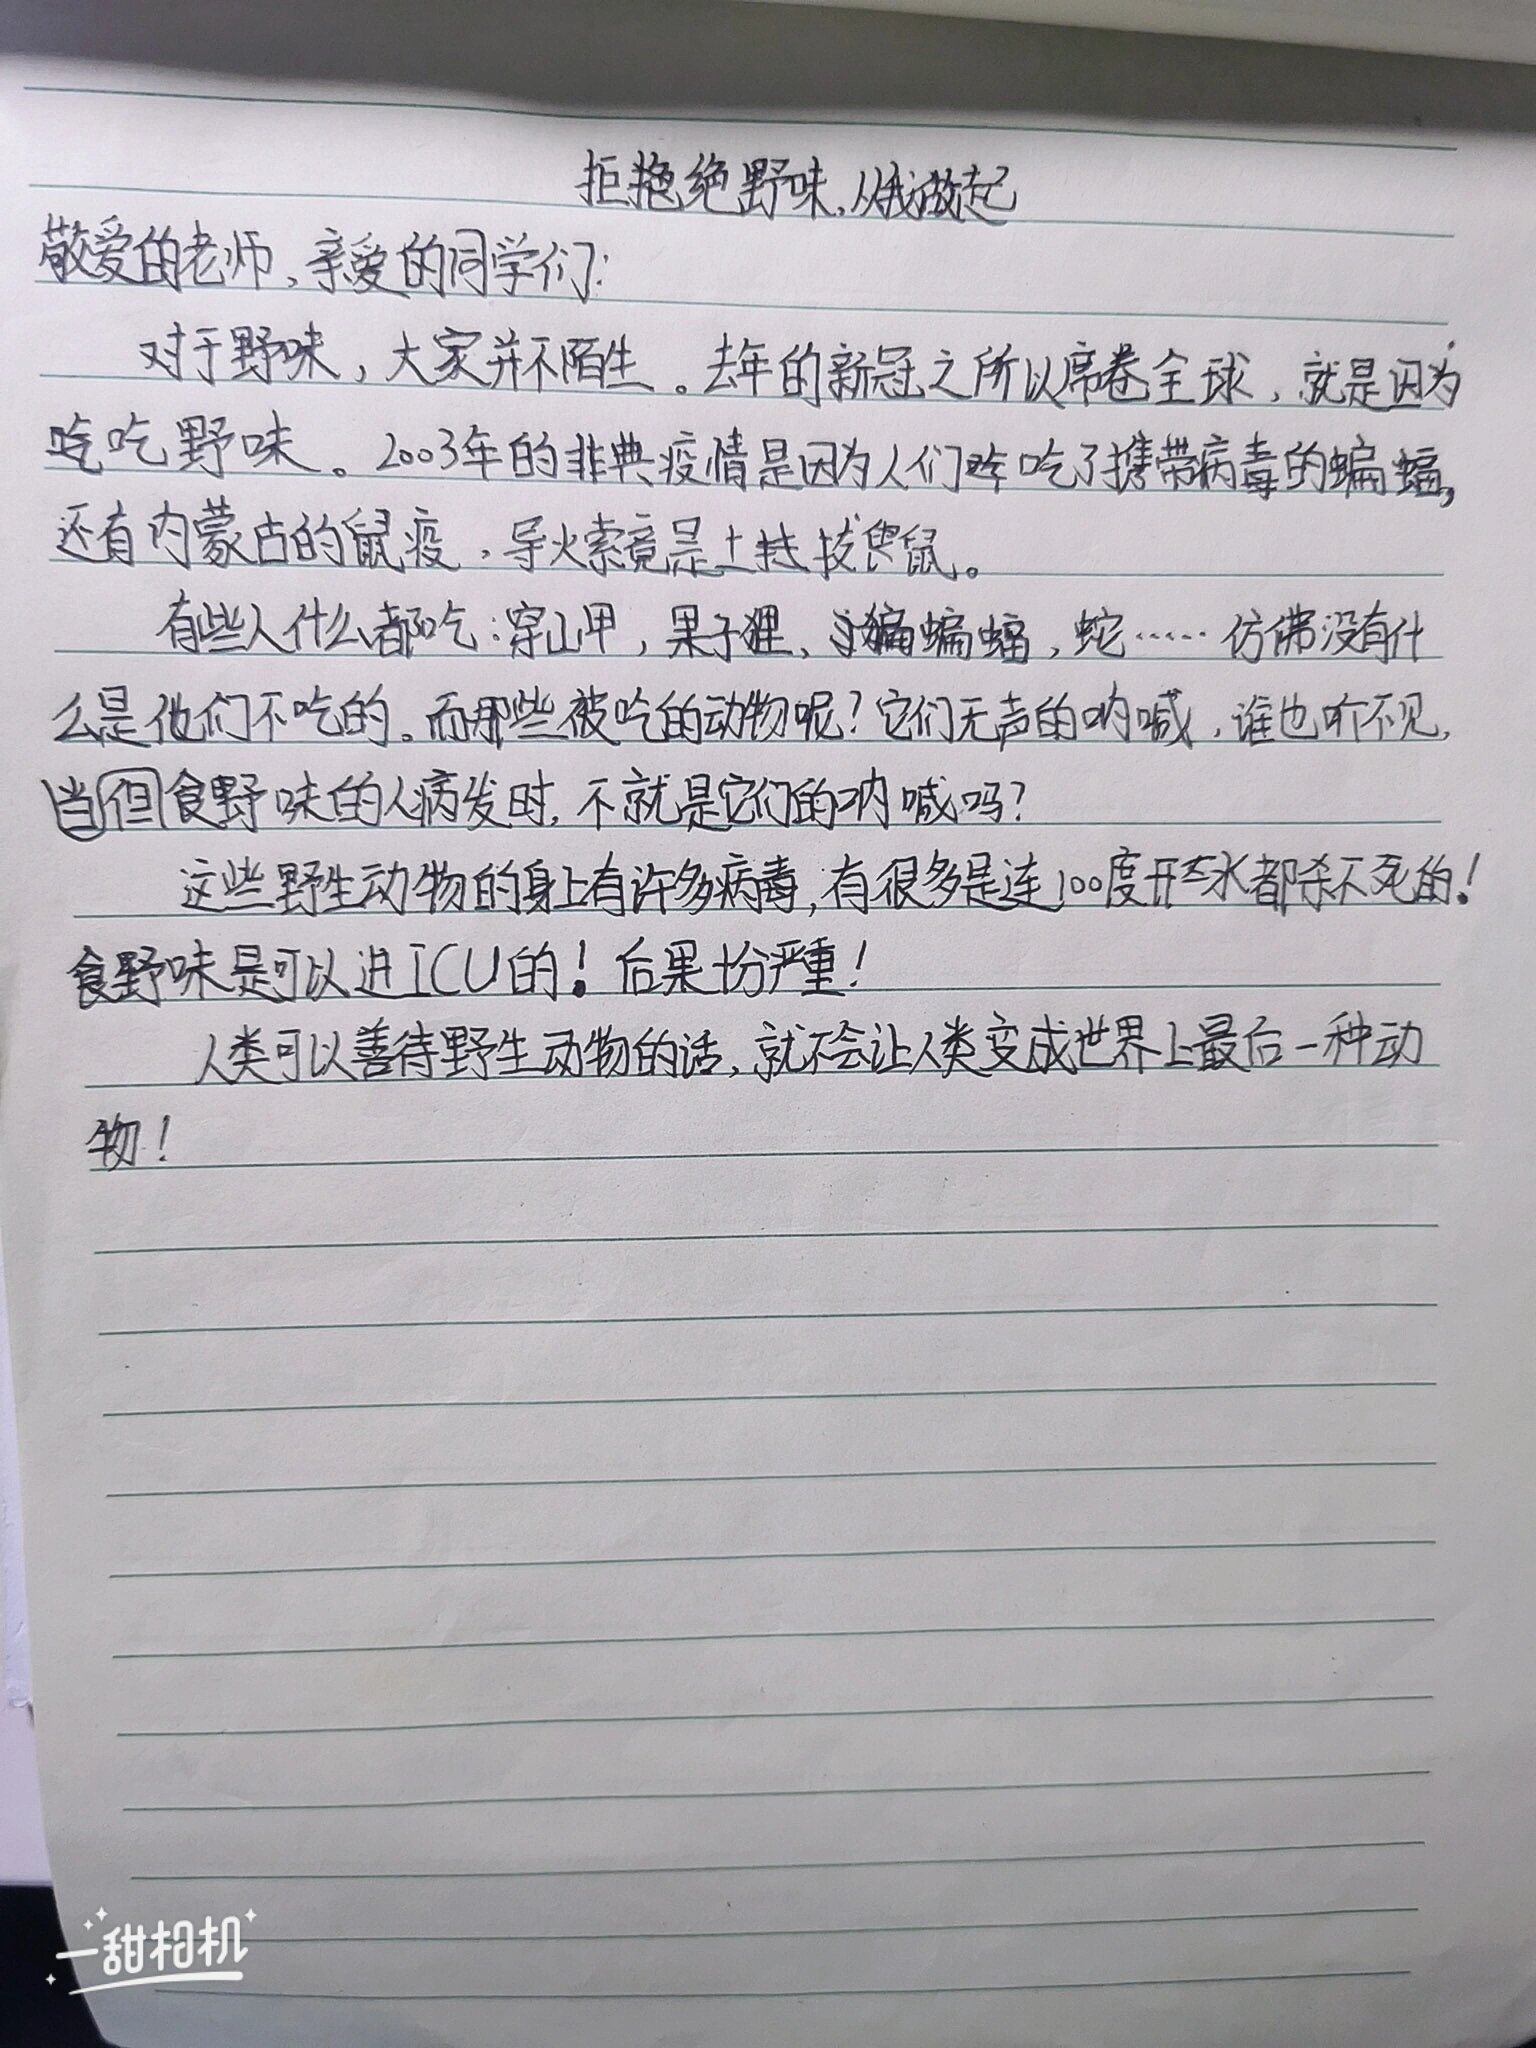 拒绝野味，从我做起
敬爱的老师、亲爱的同学们：
对于野味，大家并不陌生。去年的新冠之所以席卷全球，就是因为
吃野味。2003年的非典疫情是因为人们吃了携带病毒的蝙蝠，
还有内蒙古的鼠疫，导火索竟是土拨鼠。
有些人什么都吃：穿山甲，果子狸、蝙蝠，蛇……仿佛没有什
么是他们不吃的。而那些被吃的动物呢？它们无声的呐喊，谁也听不见，
当但食野味的人病发时，不就是它们的呐喊吗？
这些野生动物的身上有许多病毒，有很多是连100度开水都杀不死的！
食野味是可以进ICU的！后果十分严重！
人类可以善待野生动物的话，就不会让人类变成世界上最后一种动
物！
一甜相机